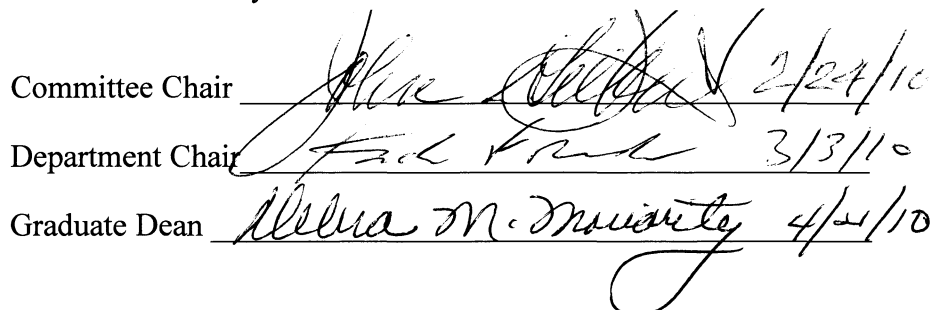 Committee Chair John 2/24/10
Department Chair 3/3/10
Graduate Dean Debra M. Moriarity 4/21/10